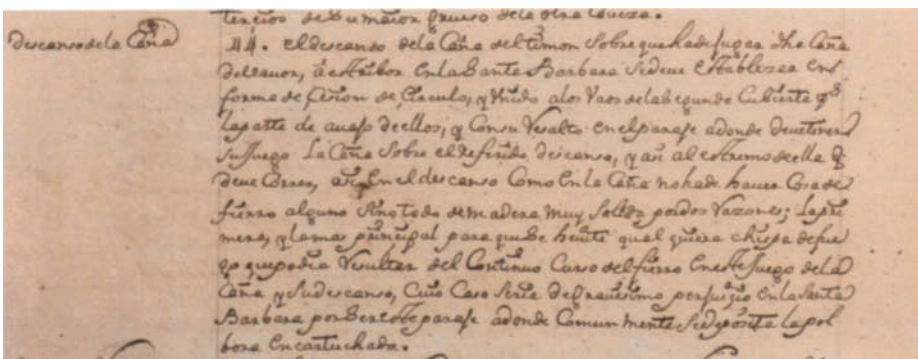 tercios de su maior grueso de la otra Caveza.
Descanso de la Caña
44. El descanso dela Caña del timon sobre que ha de jugar dha Caña
de Bavor, â estribor en la Santa Barbara se deve establezer en
forma de seccion de Circulo, y vnido alos Vaos dela segunda Cubierta pr
la parte de avajo de ellos, y Con su resalto en el paraje adonde deve tener
su Juego La Caña sobre el referido descanso, y asi al estremo de ella q
deve Correr, asi en el descanso Como en la Caña no ha de haver Cosa de
fierro alguno sino todo de madera muy solida por dos razones; la pri
mera, y la mas principal para que se hevite qual quiera chispa de fue
go que podia resultar del Continuo Curso del fierro en este Juego dela
Caña y su descanso, Cuio Caso seria de gravissimo perjuizio en la Santa
Barbara por ser este paraje adonde Comun mente se deposita la pol
bora encartuchada.